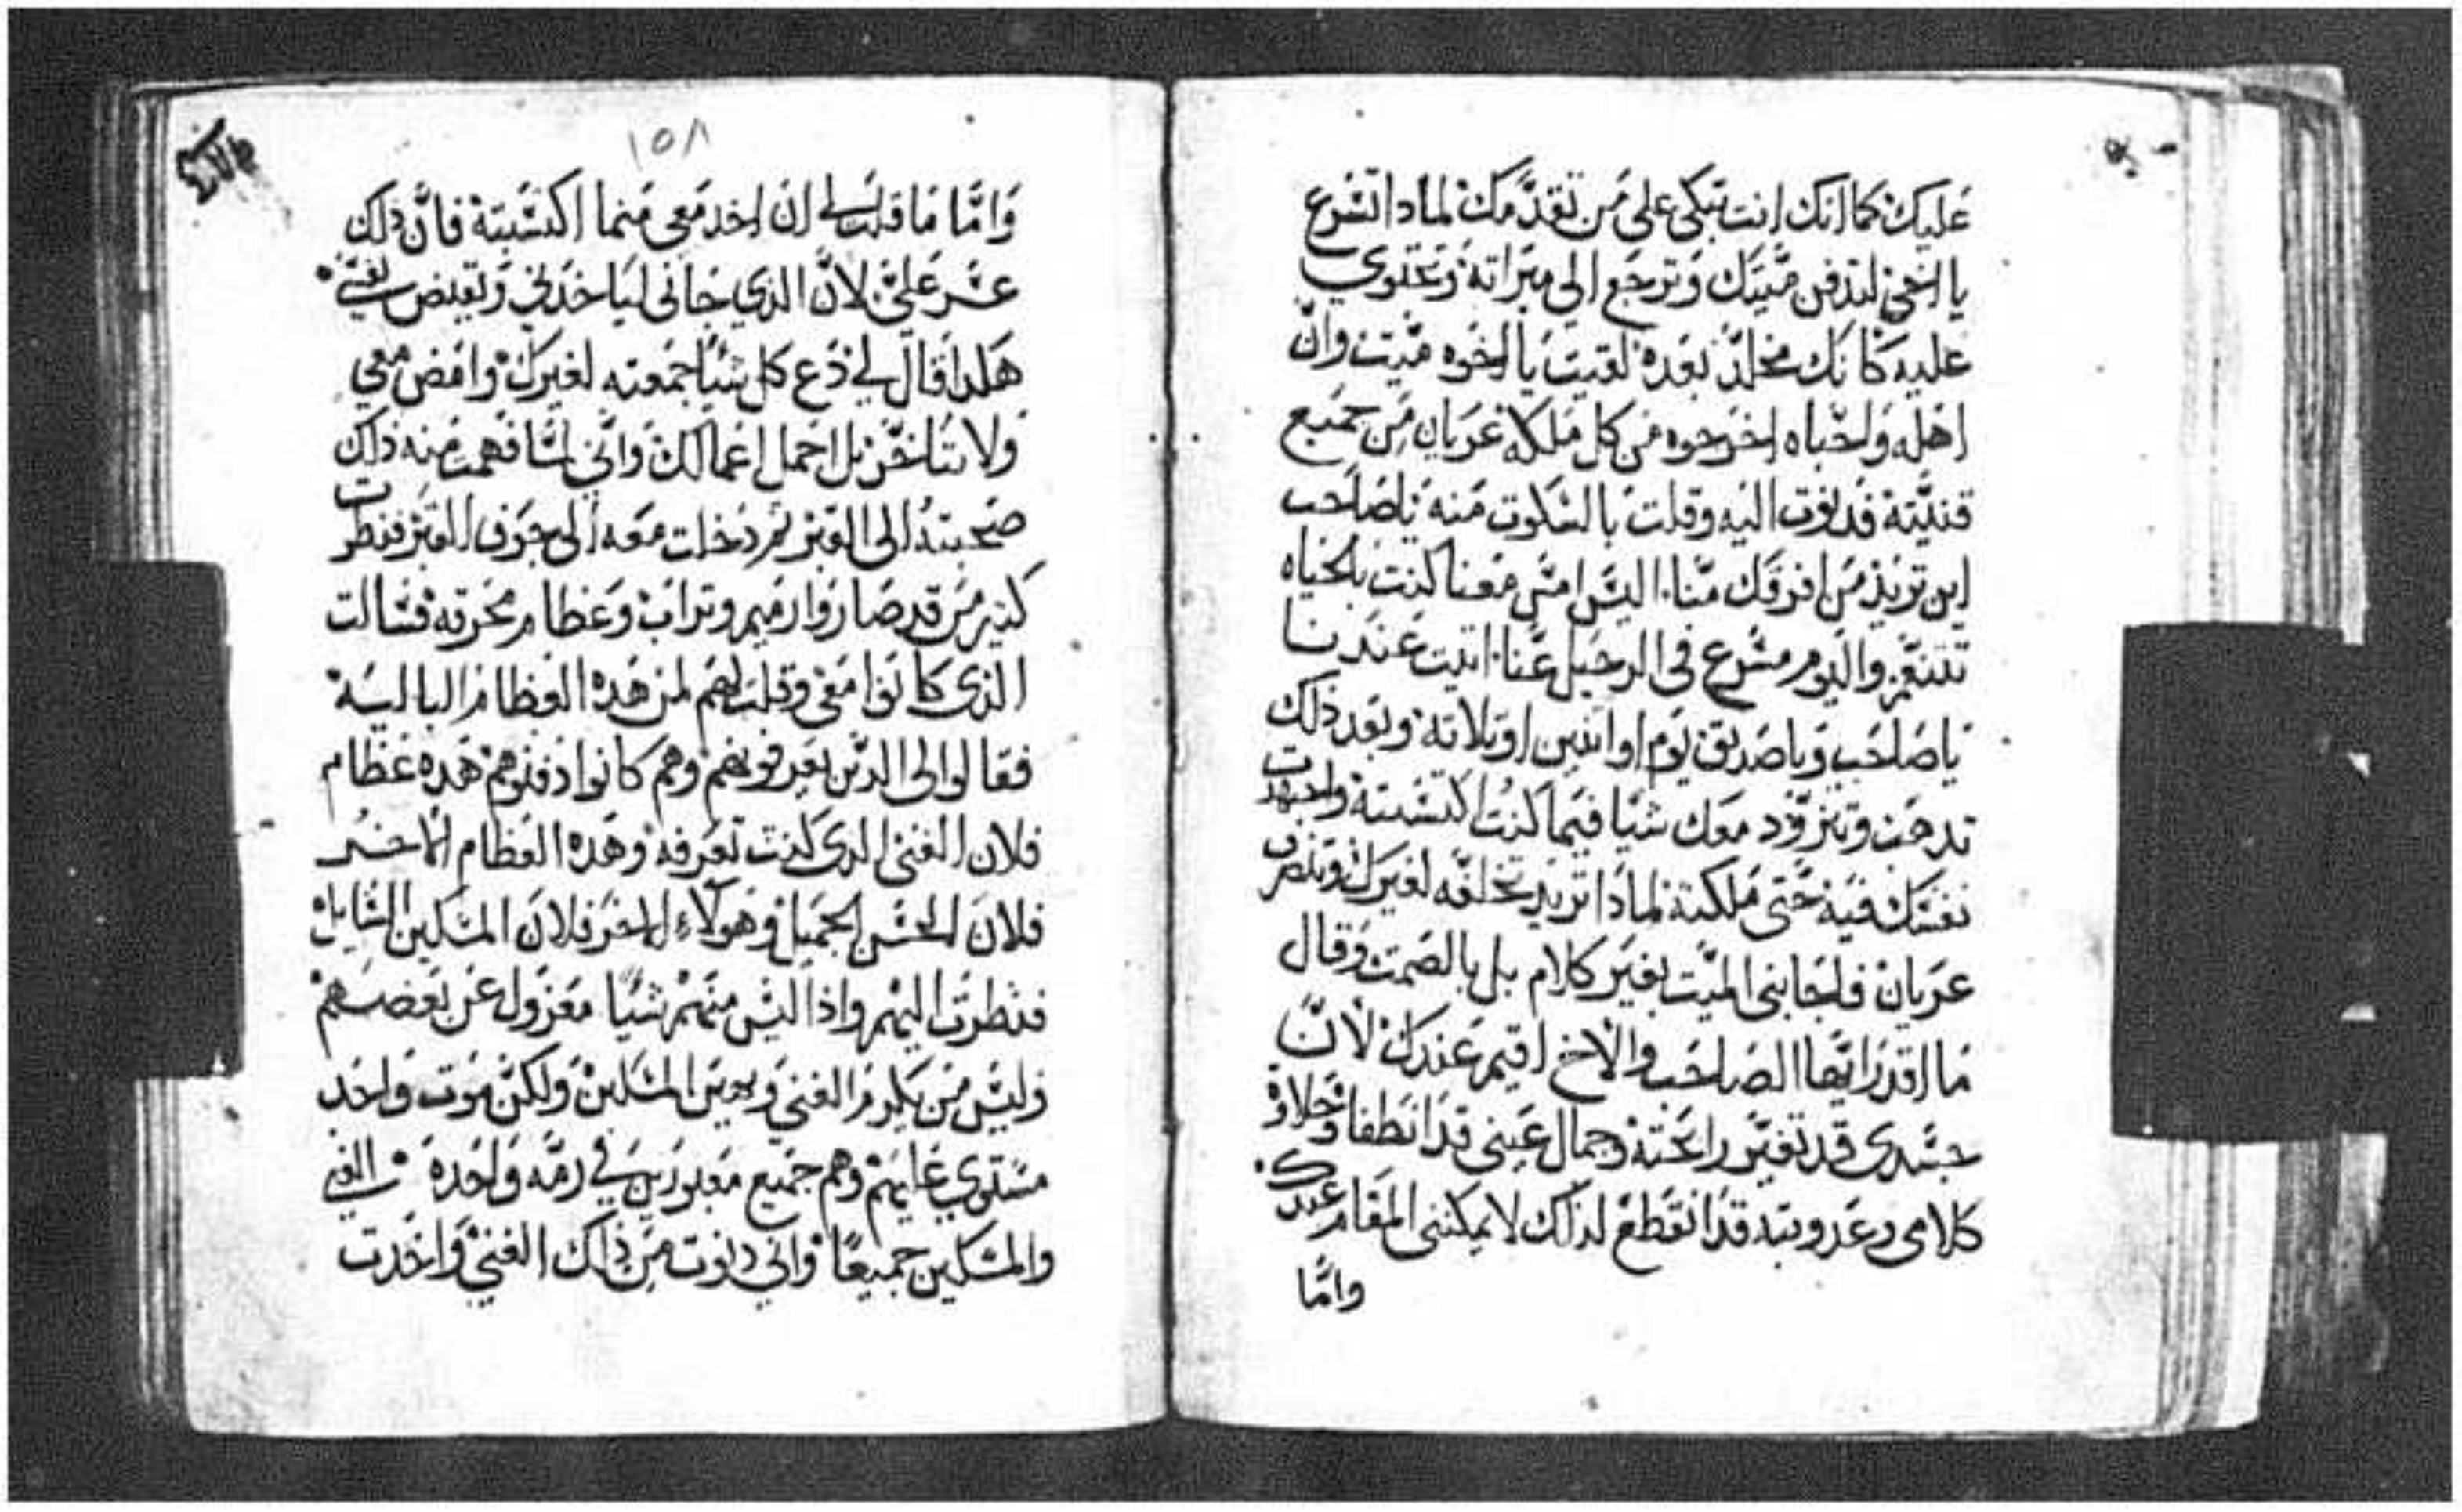 عليك كما انك انت تبكى على من تقدمك لمادا تسرع
يا اخي لتدفن ميتك وترجع الى ميراته وتحتوي
عليه كانك مخلد بعده لقيت يا اخوه ميت وان
اهله واحباه اخرجوه من كل ملكه عريان من جميع
قنيته فدنوت اليه وقلت بالسكوت منه ياصاحب
اين تريد من افرقك منا اليس امس معنا كنت بالحياه
تتنعم واليوم مسرع في الرحيل عنا اتيت عندنا
ياصاحب وياصديق يوم او اتنين او تلاته وبعد ذلك
تدهب وتتزود معك شيا فيما كنت اكتسبته واجهدت
نفسك فيه حتى ملكته لماذا تريد تخلفه لغيرك وتمضى
عريان فاجابنى الميت بغير كلام بل بالصمت وقال
ما اقدر ايها الصاحب والاخ اقيم عندك لان
جسدى قد تغير رايحته وجمال عينى قد انطفا وحلاوة
كلامى وعدوبته قد انقطع لدلك لا يمكننى المقام عندك
واما
١٥٨
واما ما قلت لي ان اخد معي منما اكتسبته فان ذلك
عسر علي لان الدي جانى لياخدني ويقبض نفسي
هكدا قال لي دع كل شيا جمعته لغيرك وامض معي
ولا تتاخر بل احمل اعمالك واني لما فهمت منه ذلك
صحبته الى القبر ثم دخلت معه الى جوف القبر فنظرت
كثير من قد صاروا رميم وتراب وعظام نخرته فسالت
الذى كانوا معى وقلت لهم لمن هده العظام الباليه
فقالوا لى الدين يعرفونهم وهم كانوا دفنوهم هده عظام
فلان الغنى الدى كنت تعرفه وهده العظام الاخر
فلان الحسن الجميل وهولاء الاخر فلان المسكين السايل
فنظرت اليهم واذا ليس منهم شيا معزول عن بعضهم
وليس من يكرم الغني ويهين المسكين ولكن موت واحد
مستوي عليهم وهم جميع مقبورين في رمه واحده الغني
والمسكين جميعا واني دنوت من ذلك الغني واخدت